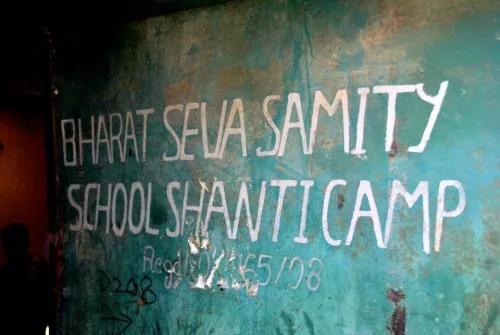 BHARAT SEVA SAMITY
SCHOOL SHANTI CAMP
Regd
D 208